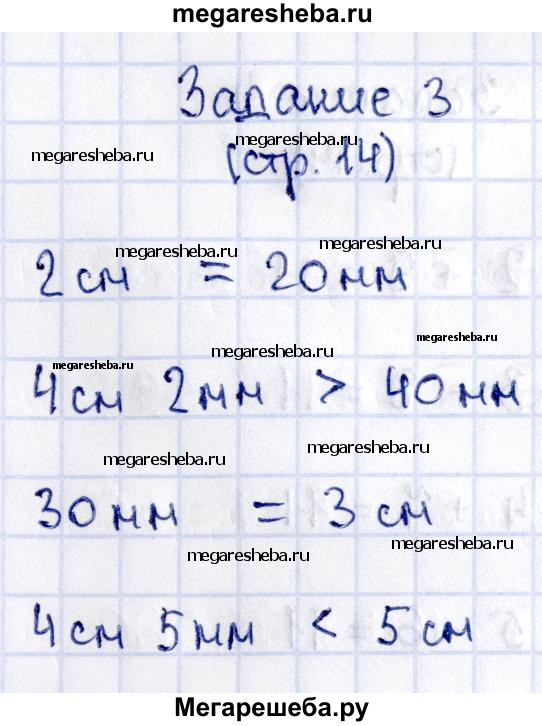 megaresheba.ru
Задание 3
megaresheba.ru
megaresheba.ru
(стр. 14)
megaresheba.ru
megaresheba.ru
2 см = 20 мм
megaresheba.ru
megaresheba.ru
megaresheba.ru
4 см 2 мм > 40 мм
megaresheba.ru
megaresheba.ru
30 мм = 3 см
megaresheba.ru
megaresheba.ru
4 см 5 мм < 5 см
Мегарешеба.ру